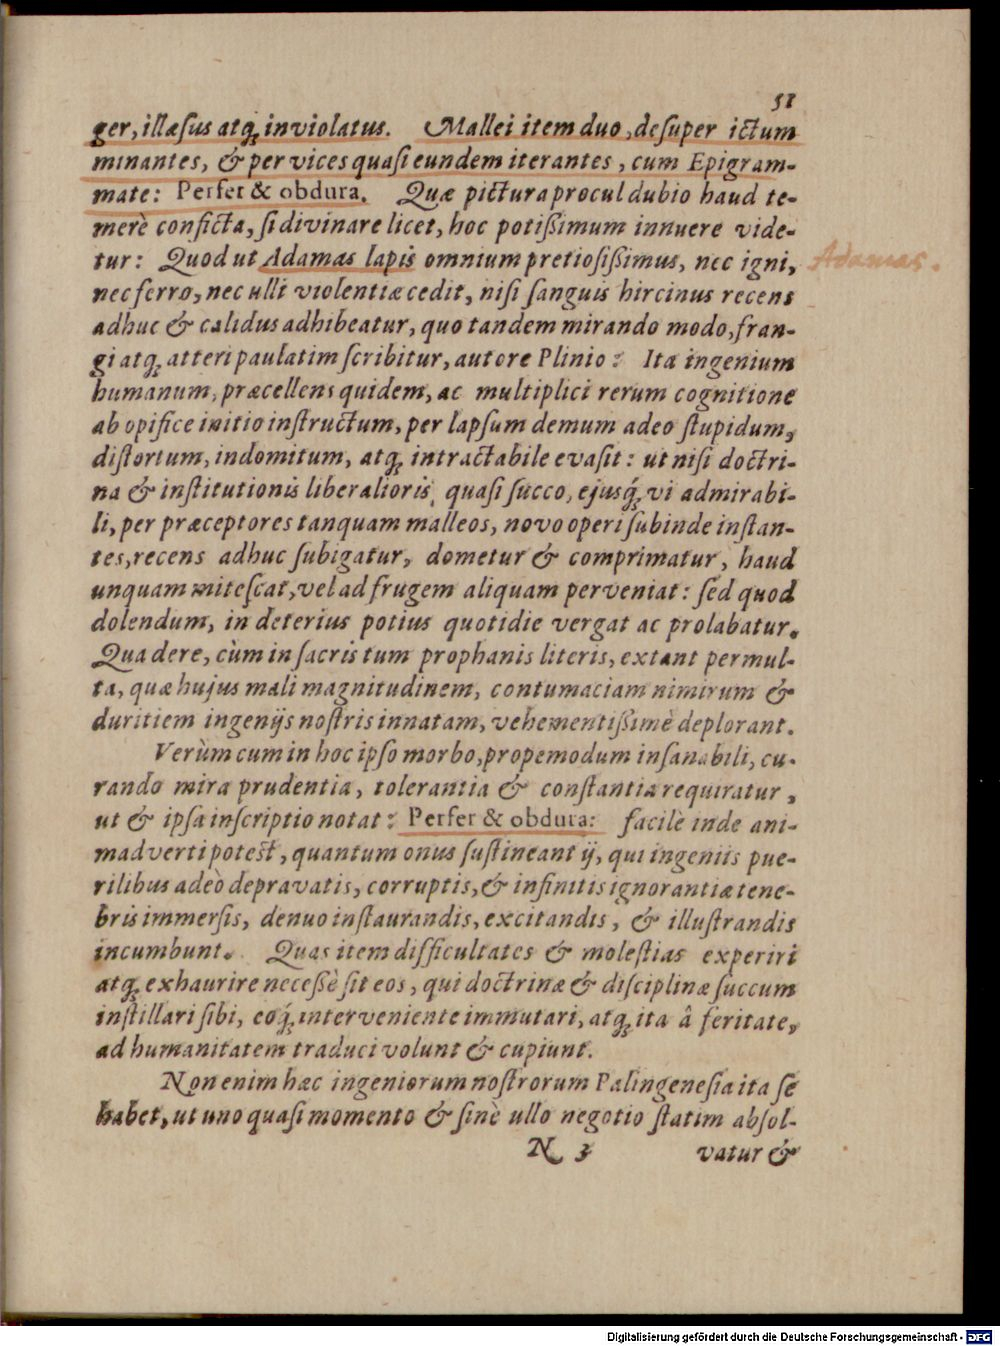 51
ger, illæſus atq; inviolatus. Mallei item duo, deſuper ictum
minantes, & per vices quaſi eundem iterantes, cum Epigram-
mate: Perfer & obdura. Quæ pictura procul dubio haud te-
merè conficta, ſi divinare licet, hoc potiſſimum innuere vide-
tur: Quod ut Adamas lapis omnium pretioſiſſimus, nec igni,
Adamas.
nec ferro, nec ulli violentiæ cedit, niſi ſanguis hircinus recens
adhuc & calidus adhibeatur, quo tandem mirando modo, fran-
gi atq; atteri paulatim ſcribitur, autore Plinio: Ita ingenium
humanum, præcellens quidem, ac multiplici rerum cognitione
ab opifice initio inſtructum, per lapſum demum adeo ſtupidum,
diſtortum, indomitum, atq; intractabile evaſit: ut niſi doctri-
na & inſtitutionis liberalioris, quaſi ſucco, ejusq́; vi admirabi-
li, per præceptores tanquam malleos, novo operi ſubinde inſtan-
tes, recens adhuc ſubigatur, dometur & comprimatur, haud
unquam miteſcat, vel ad frugem aliquam perveniat: ſed quod
dolendum, in deterius potius quotidie vergat ac prolabatur.
Qua de re, cùm in ſacris tum prophanis literis, extant permul-
ta, quæ hujus mali magnitudinem, contumaciam nimirum &
duritiem ingenijs noſtris innatam, vehementiſſimè deplorant.
Verùm cum in hoc ipſo morbo, propemodum inſanabili, cu-
rando mira prudentia, tolerantia & conſtantia requiratur,
ut & ipſa inſcriptio notat: Perfer & obdura: facilè inde ani-
madverti poteſt, quantum onus ſuſtineant ij, qui ingeniis pue-
rilibus adeò depravatis, corruptis, & infinitis ignorantiæ tene-
bris immerſis, denuo inſtaurandis, excitandis, & illuſtrandis
incumbunt. Quas item difficultates & moleſtias experiri
atq; exhaurire neceſſè ſit eos, qui doctrinæ & diſciplinæ ſuccum
inſtillari ſibi, eoq́; interveniente immutari, atq; ita â feritate,
ad humanitatem traduci volunt & cupiunt.
Non enim hæc ingeniorum noſtrorum Palingeneſia ita ſe
habet, ut uno quaſi momento & ſinè ullo negotio ſtatim abſol-
N 3 vatur &
Digitalisierung gefördert durch die Deutsche Forschungsgemeinschaft - DFG